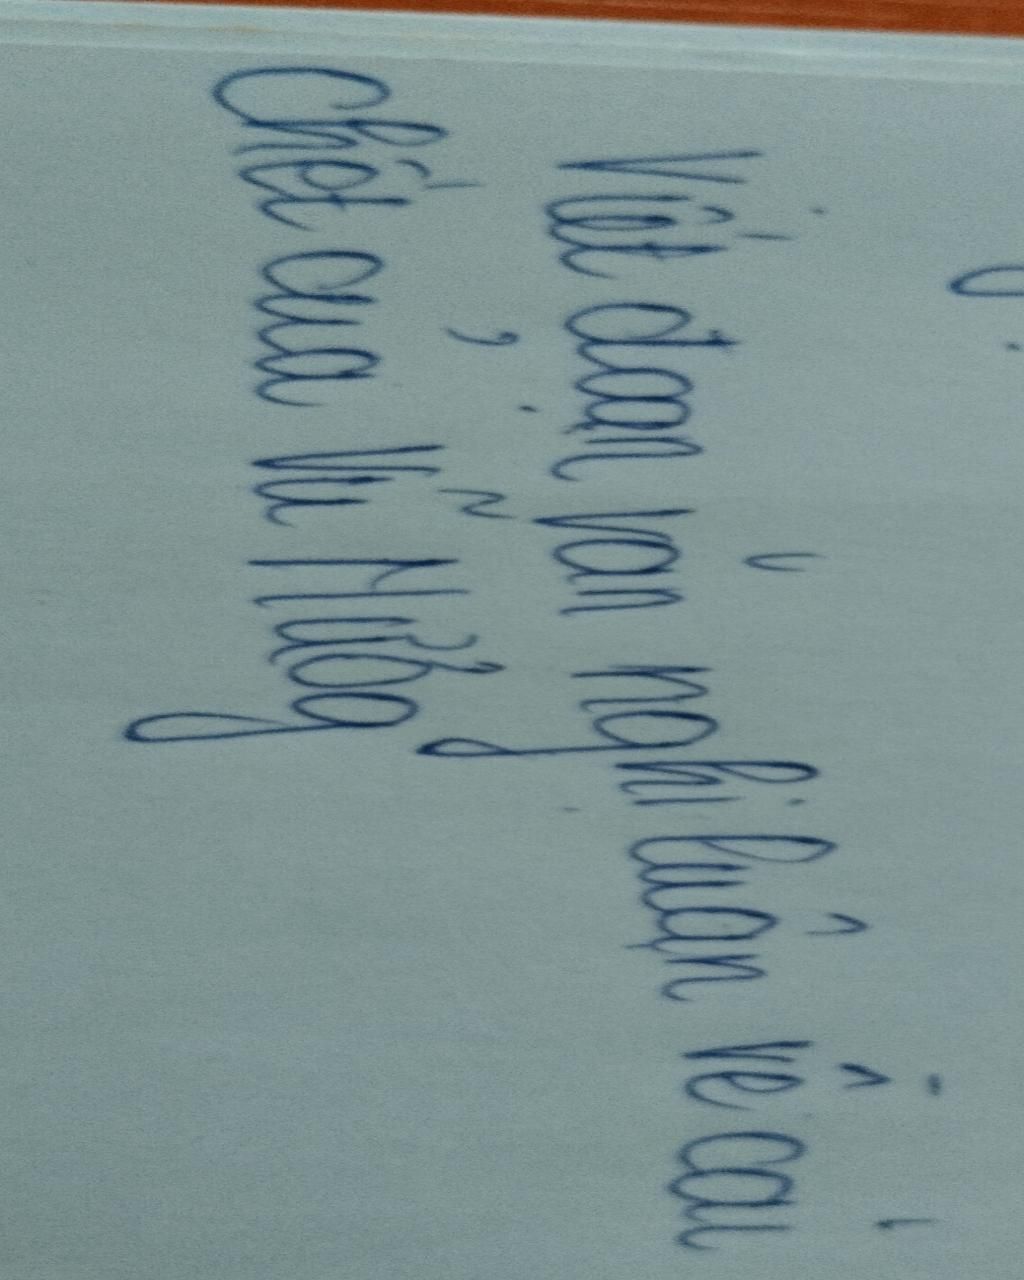 Viết đoạn văn nghị luận về cái
Chết của Vũ Nương